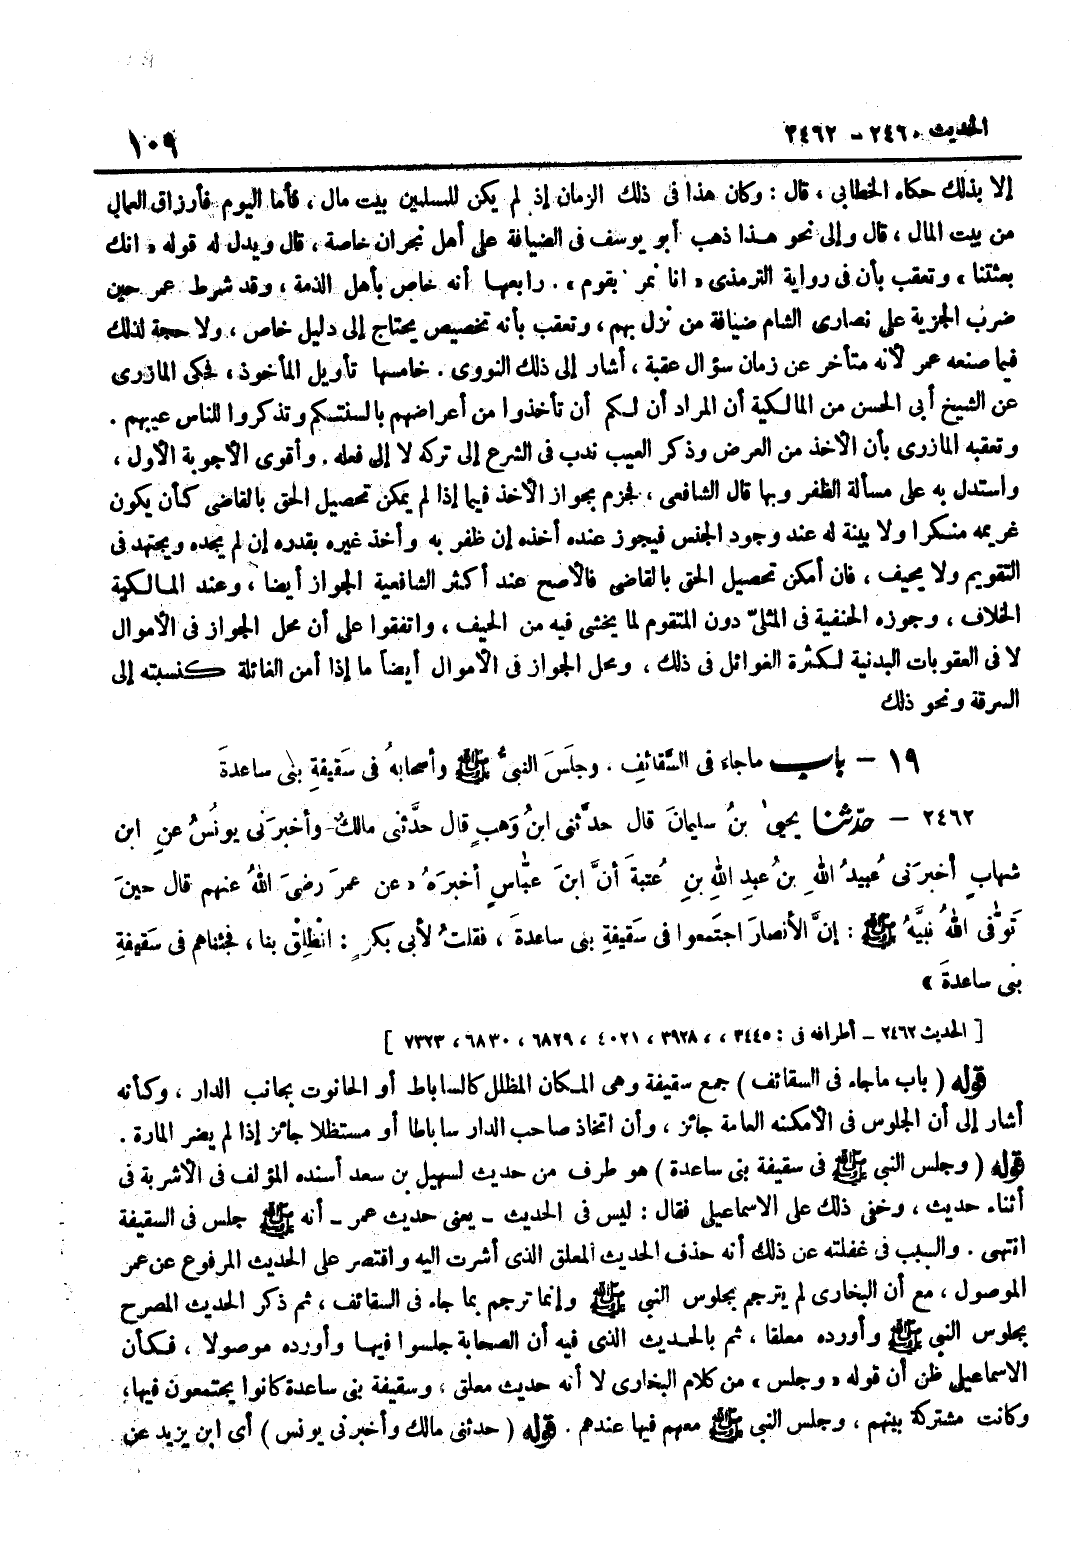 الحديث ٢٤٦٠ - ٢٤٦٢
١٠٩
إلا بذلك حكاه الخطابى ، قال : وكان هذا فى ذلك الزمان إذ لم يكن للمسلمين بيت مال ، فأما اليوم فأرزاق العمال
من بيت المال ، قال وإلى نحو هـذا ذهب أبو يوسف فى الضيافة على أهل نجران خاصة ، قال ويدل له قوله « انك
بعثتنا » وتعقب بأن فى رواية الترمذى « انا نمر بقوم » . رابعهـا أنه خاص بأهل الذمة ، وقد شرط عمر حين
ضرب الجزية على نصارى الشام ضيافة من نزل بهم ، وتعقب بأنه تخصيص يحتاج إلى دليل خاص ، ولا حجة لذلك
فيما صنعه عمر لأنه متأخر عن زمان سؤال عقبة ، أشار إلى ذلك النووى . خامسها تأويل المأخوذ ، فحكى المازرى
عن الشيخ أبى الحسن من المالكية أن المراد أن لـكم أن تأخذوا من أعراضهم بألسنتـكم وتذكروا للناس عيبهم .
وتعقبه المازرى بأن الأخذ من العرض وذكر العيب ندب فى الشرع إلى تركه لا إلى فعله . وأقوى الأجوبة الأول ،
واستدل به على مسألة الظفر وبها قال الشافعى ، فجزم بجواز الأخذ فيما إذا لم يمكن تحصيل الحق بالقاضى كـأن يكون
غريمه منـكرا ولا بينة له عند وجود الجنس فيجوز عنده أخذه إن ظفر به وأخذ غيره بقدره إن لم يجده ويجتهد فى
التقويم ولا يحيف ، فان أمكن تحصيل الحق بالقاضى فالأصح عند أكثر الشافعية الجواز أيضا ، وعند المـالـكية
الخلاف ، وجوزه الحنفية فى المثلىّ دون المتقوم لما يخشى فيه من الحيف ، واتفقوا على أن محل الجواز فى الأموال
لا فى العقوبات البدنية لـكثرة الغوائل فى ذلك ، ومحل الجواز فى الأموال أيضاً ما إذا أمن الغائلة كـنسبته إلى
السرقة ونحو ذلك
١٩ - باب ماجاءَ فى السَّقائفِ . وجلَسَ النبىُّ ﷺ وأصحابهُ فى سَقيفةِ بنى ساعدةَ
٢٤٦٢ - حدّثنا يحيىٰ بنُ سليمانَ قال حدَّثنى ابنُ وَهبٍ قال حدَّثنى مالكٌ وأخبرَنى يونُسُ عنِ ابن
شهابٍ أخبرَنى عُبيدُ اللهِ بنُ عبدِ اللهِ بنِ عُتبةَ أنَّ ابنَ عبَّاسٍ أخبرَهُ « عن عمرَ رضىَ اللهُ عنهم قال حينَ
تَوَفَّى اللهُ نبيَّهُ ﷺ : إنَّ الأنصارَ اجتَمعوا فى سَقيفةِ بنى ساعدةَ ، فقلتُ لأبى بكرٍ : انْطلِقْ بنا ، فجئناهم فى سَقيفةِ
بنى ساعدةَ »
[ الحديث ٢٤٦٢ - أطرافه فى : ٣٤٤٥ ، ، ٣٩٢٨ ، ٤٠٢١ ، ٦٨٢٩ ، ٦٨٣٠ ، ٧٣٢٣ ]
قوله ( باب ماجاء فى السقائف ) جمع سقيفة وهى المـكان المظلل كالساباط أو الحانوت بجانب الدار ، وكأنه
أشار إلى أن الجلوس فى الأمكنه العامة جائز ، وأن اتخاذ صاحب الدار ساباطا أو مستظلا جائز إذا لم يضر المارة .
قوله ( وجلس النبى ﷺ فى سقيفة بنى ساعدة ) هو طرف من حديث لسهيل بن سعد أسنده المؤلف فى الأشربة فى
أثناء حديث ، وخفى ذلك على الاسماعيلى فقال : ليس فى الحديث - يعنى حديث عمر - أنه ﷺ جلس فى السقيفة
انتهى . والسبب فى غفلته عن ذلك أنه حذف الحديث المعلق الذى أشرت اليه واقتصر على الحديث المرفوع عن عمر
الموصول ، مع أن البخارى لم يترجم بجلوس النبى ﷺ وإنما ترجم بما جاء فى السقائف ، ثم ذكر الحديث المصرح
بجلوس النبى ﷺ وأورده معلقا ، ثم بالحـديث الذى فيه أن الصحابة جلسوا فيهـا وأورده موصولا ، فـكأن
الاسماعيلى ظن أن قوله « وجلس » من كلام البخارى لا أنه حديث معلق ، وسقيفة بنى ساعدة كانوا يجتمعون فيها ،
وكانت مشتركة بينهم ، وجلس النبى ﷺ معهم فيها عندهم . قوله ( حدثنى مالك وأخبرنى يونس ) أى ابن يزيد عن